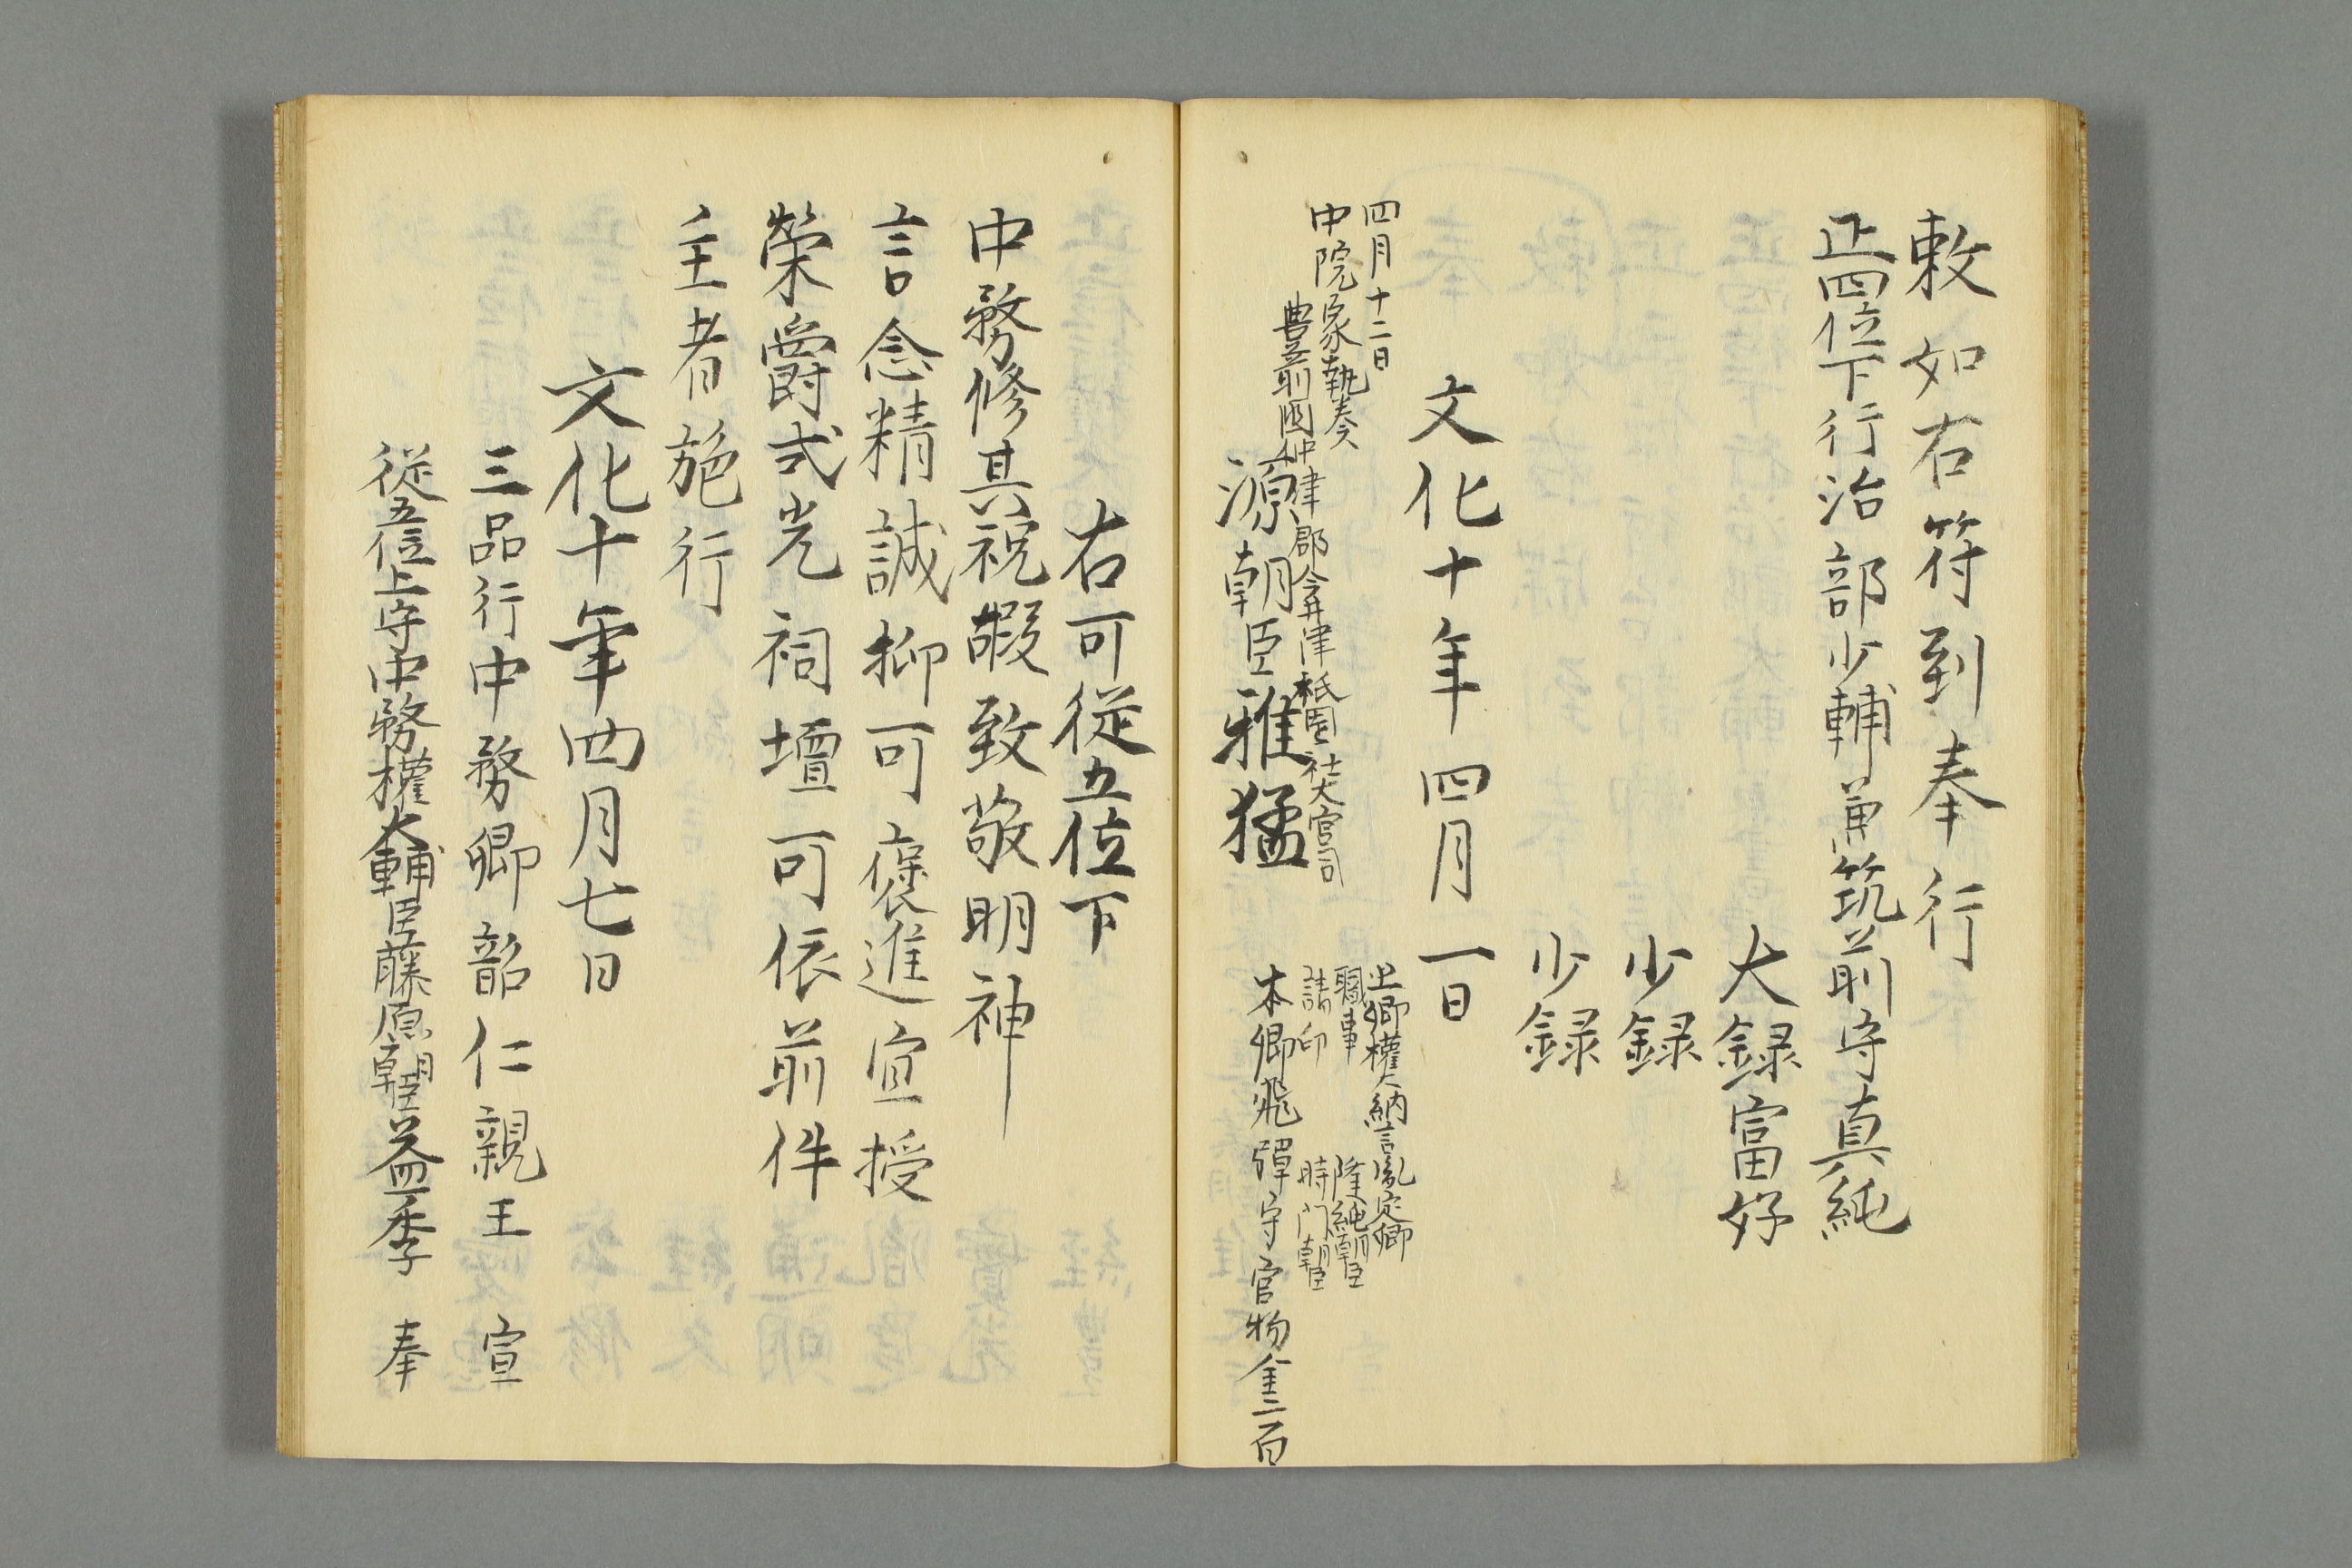 敕如右符到奉行
正四位下行治部少輔兼筑前守真純
大録富好
少録
少録
文化十年四月一日
四月十二日
中院家執奏
豊前国仲津郡今井津祇園社大宮司
源朝臣雅猛
上卿權大納言胤定卿
職事 隆純朝臣
請印 時門朝臣
本卿飛騨守官物金二百
右可從五位下
中務修其祝嘏致敬明神
言念精誠抑可褒進宜授
榮爵式光祠壇可依前件
主者施行
文化十年四月七日
三品行中務卿韶仁親王 宣
從五位上守中務權大輔臣藤原朝臣益季 奉